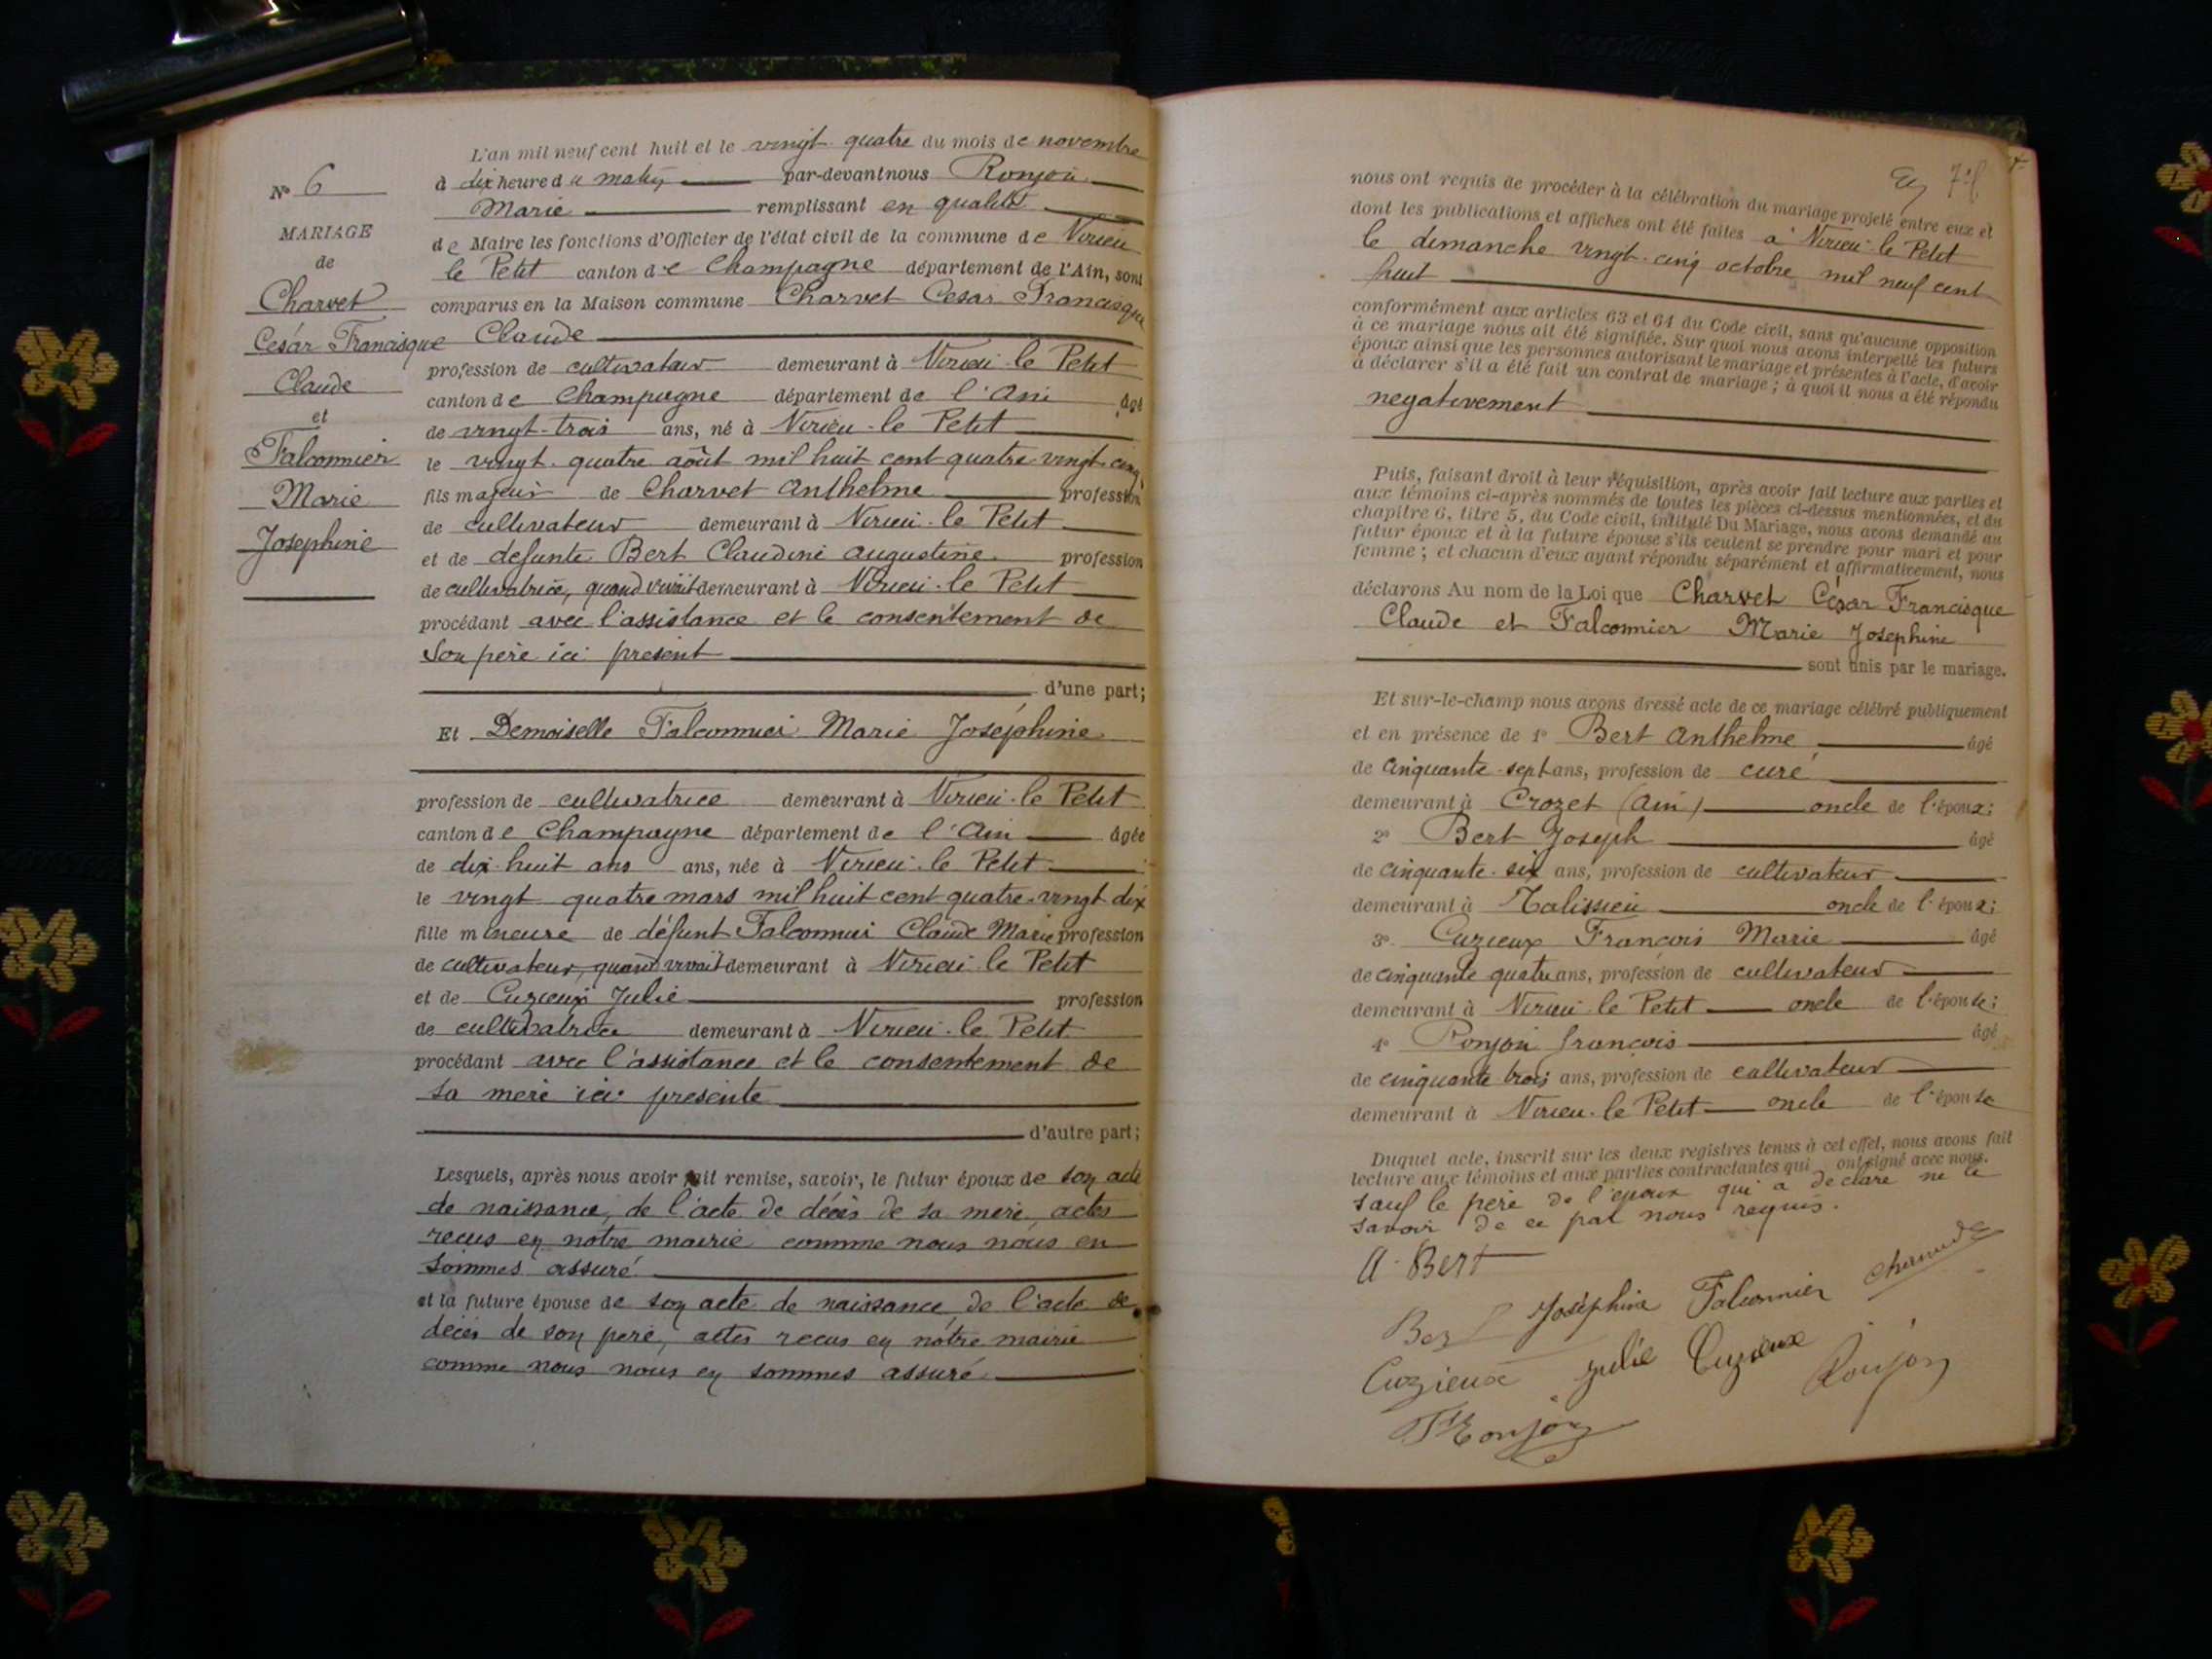 L'an mil neuf cent huit et le vingt quatre du mois de novembre
à dix heure du matin par-devant nous Ronjon
Marie remplissant en qualité
de Maire les fonctions d'Officier de l'état civil de la commune de Virieu
le Petit canton de Champagne département de l'Ain, sont
comparus en la Maison commune Charvet Cesar Francisque
Claude
profession de cultivateur demeurant à Virieu-le Petit
canton de Champagne département de l'Ain âgé
de vingt-trois ans, né à Virieu-le Petit
le vingt-quatre août mil huit cent quatre-vingt-cinq
fils majeur de Charvet Anthelme profession
de cultivateur demeurant à Virieu-le Petit
et de defunte Bert Claudine Augustine profession
de cultivatrice, quand vivait demeurant à Virieu-le Petit
procédant avec l'assistance et le consentement de
son père ici present
d'une part;
Et Demoiselle Falconnier Marie Joséphine
profession de cultivatrice demeurant à Virieu-le Petit
canton de Champagne département de l'Ain âgée
de dix-huit ans ans, née à Virieu-le Petit
le vingt quatre mars mil huit cent quatre-vingt dix
fille mineure de défunt Falconnier Claude Marie profession
de cultivateur, quand vivait demeurant à Virieu le Petit
et de Cuzieux Julie profession
de cultivatrice demeurant à Virieu-le Petit
procédant avec l'assistance et le consentement de
sa mère ici presente
d'autre part;
Lesquels, après nous avoir fait remise, savoir, le futur époux de son acte
de naissance, de l'acte de décès de sa mère, actes
recus en notre mairie comme nous nous en
sommes assuré
et la future épouse de son acte de naissance, de l'acte de
décès de son père, actes recus en notre mairie
comme nous nous en sommes assuré
N° 6
MARIAGE
de
Charvet
César Francisque
Claude
et
Falconnier
Marie
Josephine
nous ont requis de procéder à la célébration du mariage projeté entre eux et
dont les publications et affiches ont été faites à Virieu-le Petit
le dimanche vingt-cinq octobre mil neuf cent
huit
conformément aux articles 63 et 64 du Code civil, sans qu'aucune opposition
à ce mariage nous ait été signifiée. Sur quoi nous avons interpellé les futurs
époux ainsi que les personnes autorisant le mariage et présentes à l'acte, d'avoir
à déclarer s'il a été fait un contrat de mariage; à quoi il nous a été répondu
negativement
Puis, faisant droit à leur réquisition, après avoir fait lecture aux parties et
aux témoins ci-après nommés de toutes les pièces ci-dessus mentionnées, et du
chapitre 6, titre 5, du Code civil, intitulé Du Mariage, nous avons demandé au
futur époux et à la future épouse s'ils veulent se prendre pour mari et pour
femme; et chacun d'eux ayant répondu séparément et affirmativement, nous
déclarons Au nom de la Loi que Charvet César Francisque
Claude et Falconnier Marie Josephine
sont unis par le mariage.
Et sur-le-champ nous avons dressé acte de ce mariage célébré publiquement
et en présence de 1° Bert Anthelme âgé
de cinquante-sept ans, profession de curé
demeurant à Crozet (Ain) oncle de l'époux;
2° Bert Joseph âgé
de cinquante-six ans, profession de cultivateur
demeurant à Talissieu oncle de l'époux;
3° Cuzieux François Marie âgé
de cinquante quatre ans, profession de cultivateur
demeurant à Virieu-le Petit oncle de l'épouse;
4° Ronjon François âgé
de cinquante trois ans, profession de cultivateur
demeurant à Virieu-le Petit oncle de l'épouse
Duquel acte, inscrit sur les deux registres tenus à cet effet, nous avons fait
lecture aux témoins et aux parties contractantes qui ont signé avec nous.
sauf le père de l'époux qui a déclaré ne le
savoir de ce par nous requis.
A. Bert
Bert Joséphine Falconnier
Cuzieux Julie Cuzieux Ronjon
F Ronjon